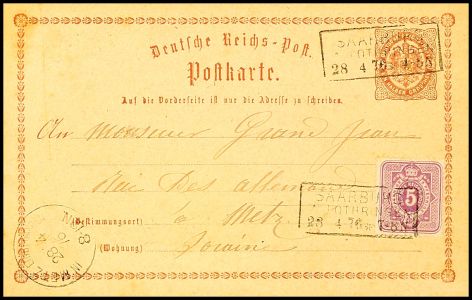 Deutsche Reichs-Post.
Postkarte.
SAARBURG
LOTHRINGEN
28 4 76
Auf die Vorderseite ist nur die Adresse zu schreiben.
An Monsieur Grand Jean
des allemands
5
(Bestimmungsort) à Metz
SAARBURG
LOTHRINGEN
28 4 76
(Wohnung)
28
4
76
8-9N